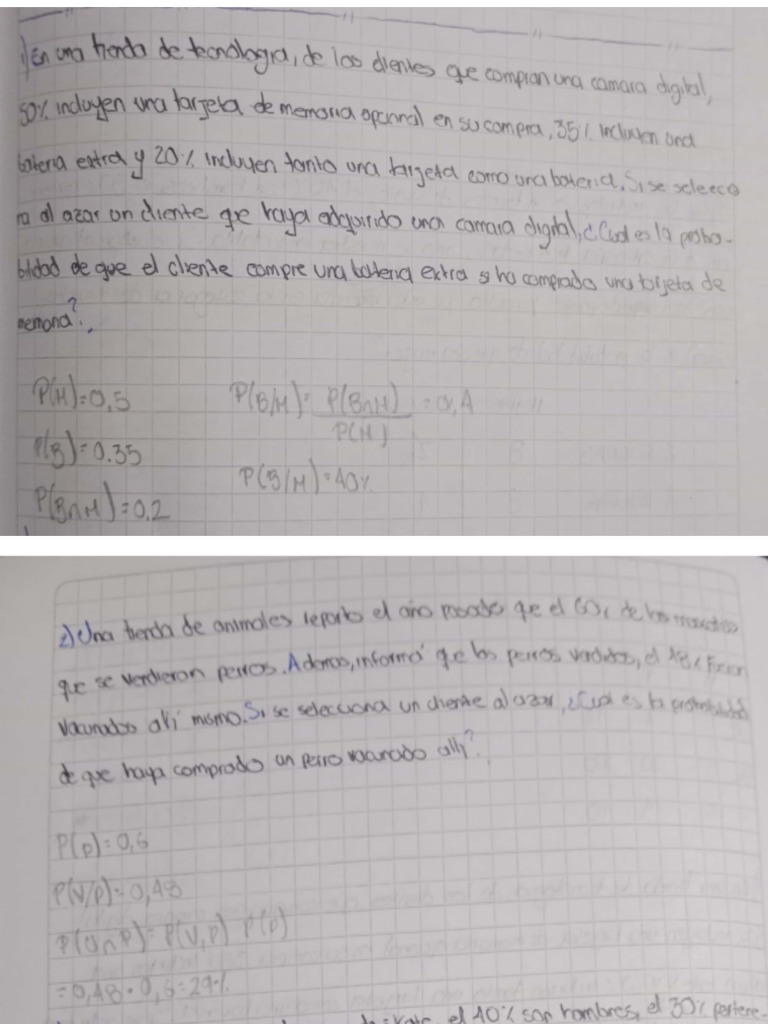 1) En una tienda de tecnologia, de los clientes que compran una camara digital,
50% incluyen una targeta de memoria opcional en su compra, 35% incluyen una
bateria extra y 20% incluyen tanto una targeta como una bateria. Si se selecco
na al azar un cliente que haya adquirido una camara digital, ¿Cual es la proba-
bilidad de que el cliente compre una bateria extra si ha comprado una tarjeta de
memoria?
P(M)=0,5
P(B)=0.35
P(B∩M)=0.2
P(B/M)= P(B∩M) = 0,4
P(M)
P(B/M)=40%
2) Una tienda de animales reporto el año pasado que el 60% de las
que se vendieron perros. Ademas, informa' que los perros vendidos, el 48% Fueron
vacunados alli mismo. Si se selecciona un cliente al azar, ¿Cual es la probabilidad
de que haya comprado un perro vacunado alli?
P(p)=0,6
P(V/p)=0,48
P(V∩P)= P(V,P) P(p)
=0,48 · 0,6=29%
el 40% son hombres, el 30% pertene-